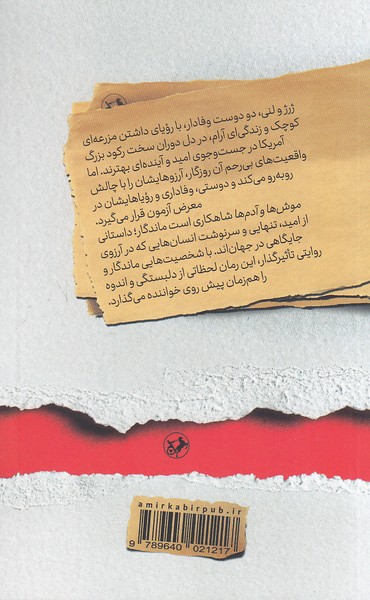 ژرژ و لنی، دو دوست وفادار، با رؤیای داشتن مزرعه‌ای
کوچک و زندگی‌ای آرام، در دل دوران سخت رکود بزرگ
آمریکا در جست‌وجوی امید و آینده‌ای بهترند. اما
واقعیت‌های بی‌رحم آن روزگار، آرزوهایشان را با چالش
روبه‌رو می‌کند و دوستی، وفاداری و رؤیاهایشان در
معرض آزمون قرار می‌گیرد.
موش‌ها و آدم‌ها شاهکاری است ماندگار؛ داستانی
از امید، تنهایی و سرنوشت انسان‌هایی که در آرزوی
جایگاهی در جهان‌اند. با شخصیت‌هایی ماندگار و
روایتی تأثیرگذار، این رمان لحظاتی از دلبستگی و اندوه
را هم‌زمان پیش روی خواننده می‌گذارد.
amirkabirpub.ir
9 789640 021217